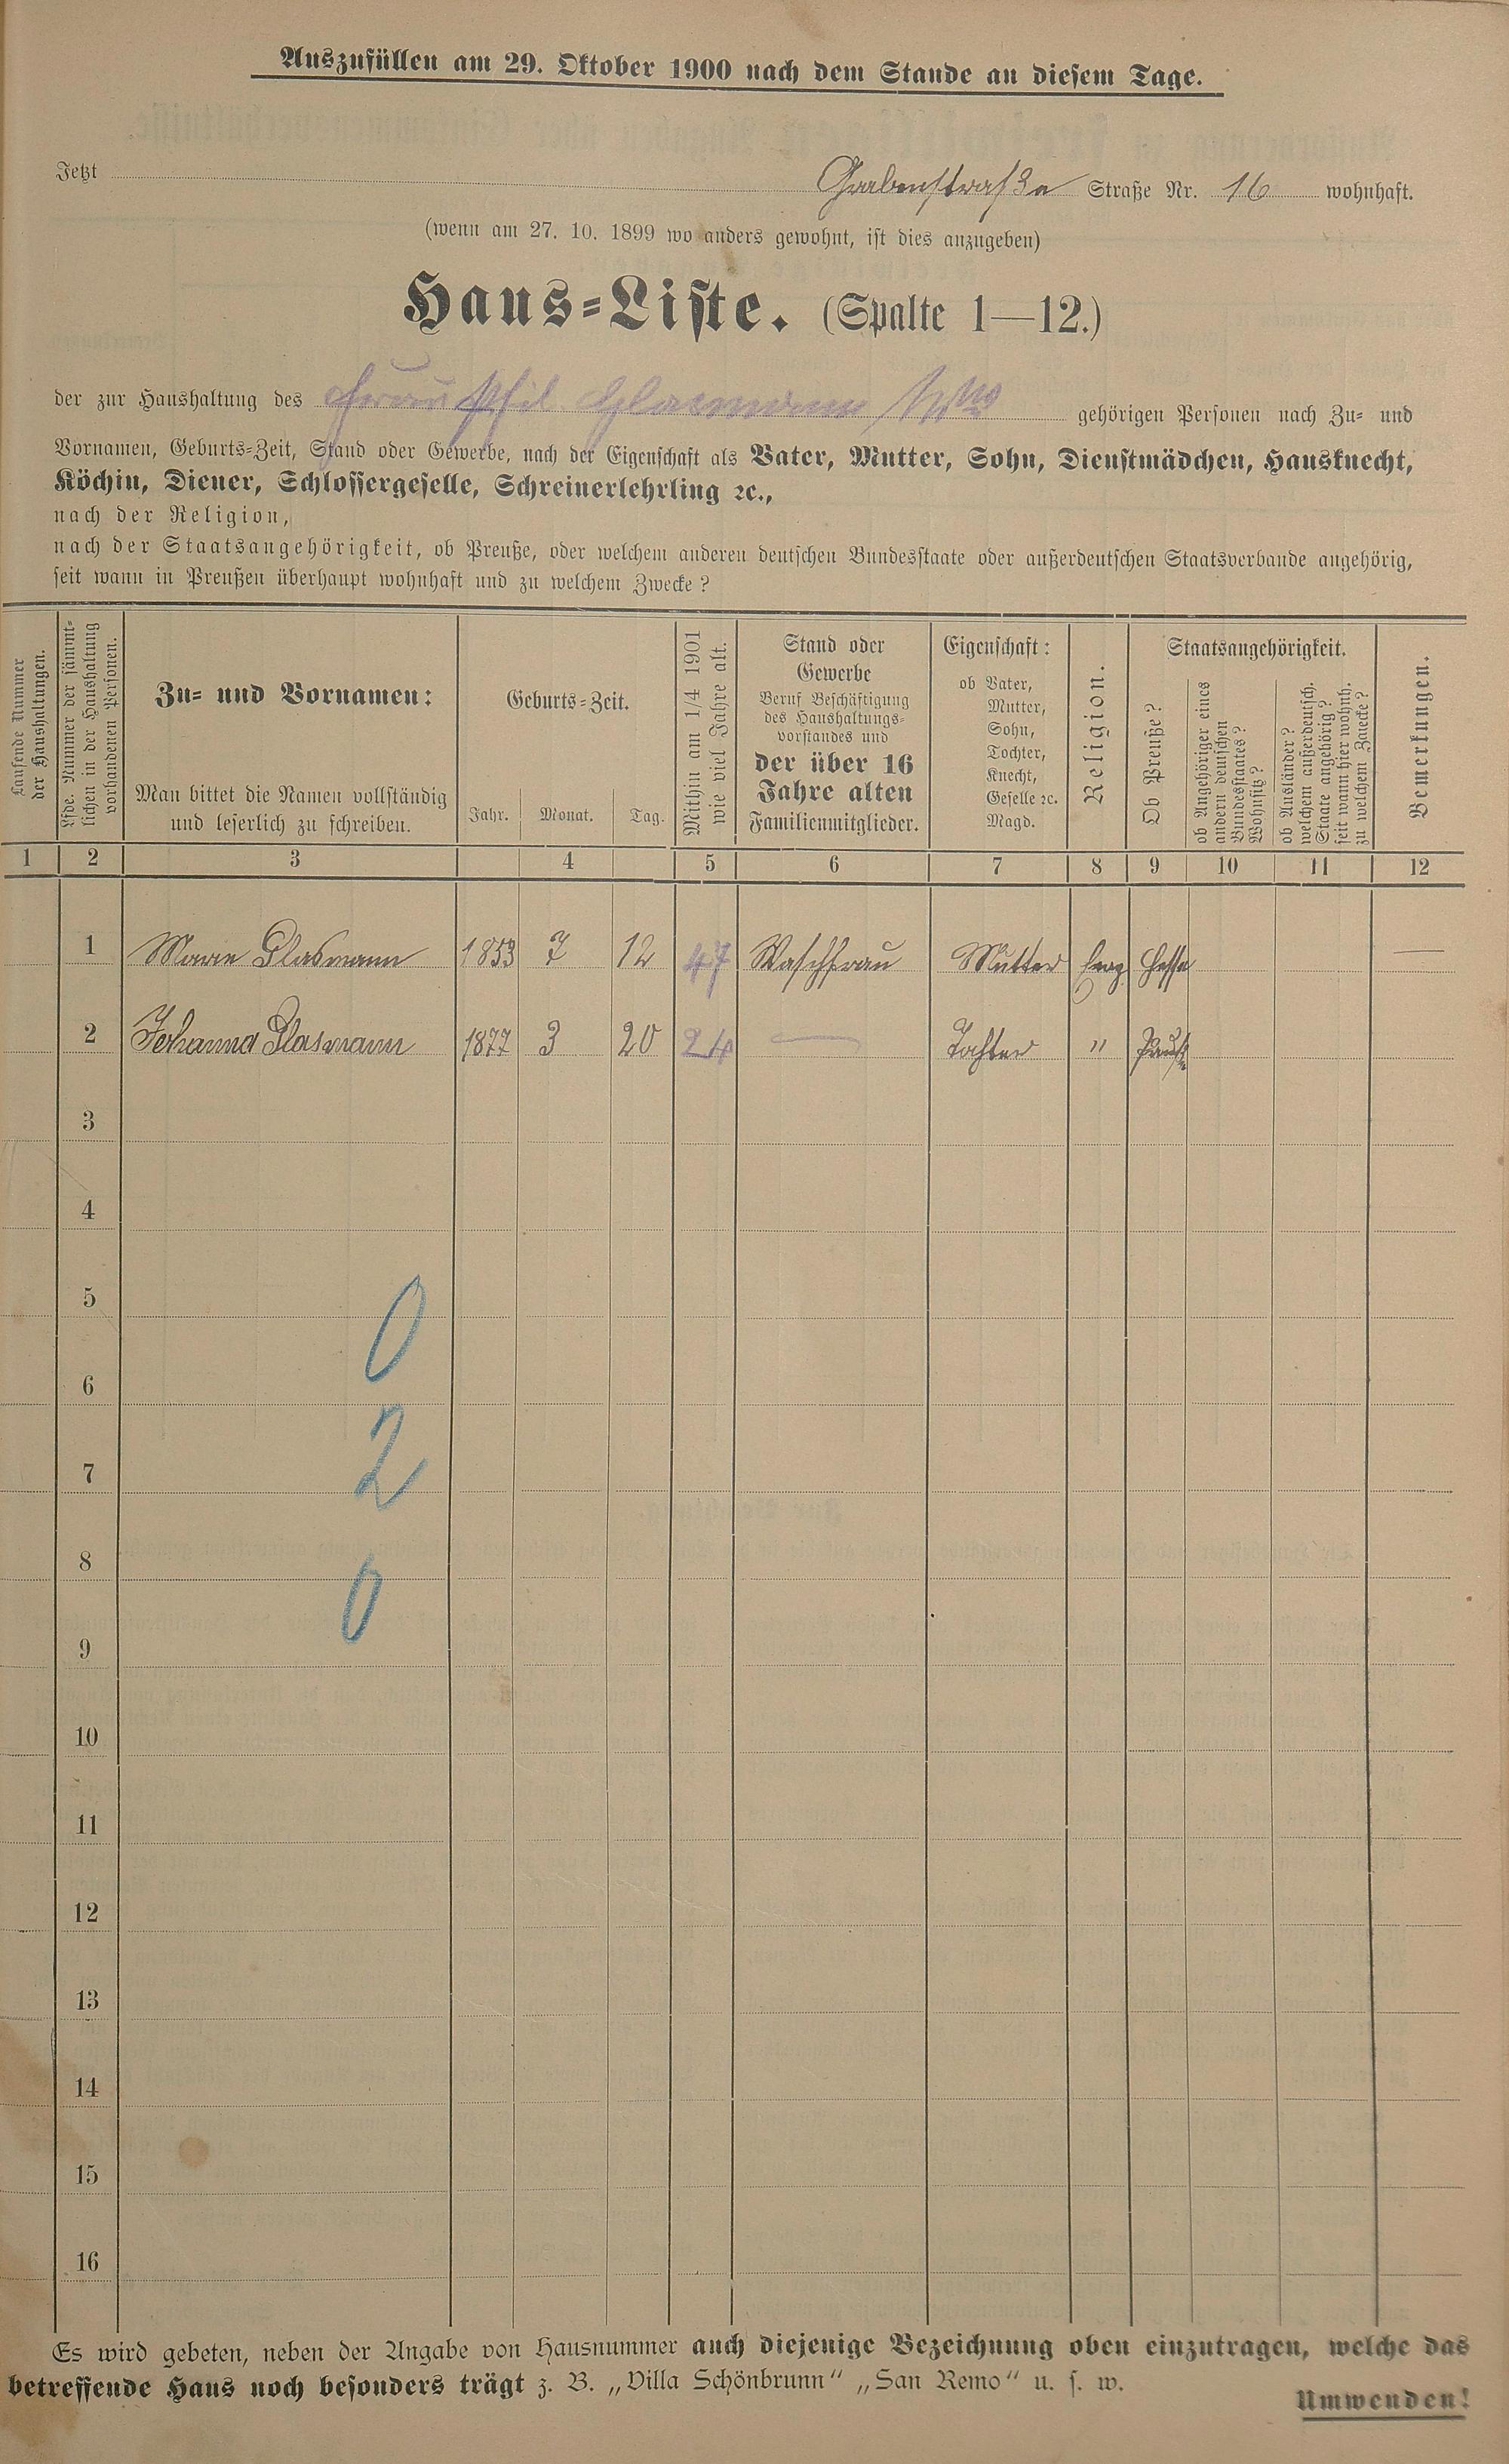 Auszufüllen am 29. Oktober 1900 nach dem Stande an diesem Tage.
Jetzt Grabenstraße Straße Nr. 16 wohnhaft.
(wenn am 27. 10. 1899 wo anders gewohnt, ist dies anzugeben)
Haus-Liste. (Spalte 1—12.)
der zur Haushaltung des Frau Phil Glasmann Wwe gehörigen Personen nach Zu- und
Vornamen, Geburts-Zeit, Stand oder Gewerbe, nach der Eigenschaft als Vater, Mutter, Sohn, Dienstmädchen, Hausknecht,
Köchin, Diener, Schlossergeselle, Schreinerlehrling ꝛc.,
nach der Religion,
nach der Staatsangehörigkeit, ob Preuße, oder welchem anderen deutschen Bundesstaate oder außerdeutschen Staatsverbande angehörig,
seit wann in Preußen überhaupt wohnhaft und zu welchem Zwecke?
Laufende Nummer
der Haushaltungen.
Lfde. Nummer der sämmt-
lichen in der Haushaltung
vorhandenen Personen.
Zu- und Vornamen:
Man bittet die Namen vollständig
und leserlich zu schreiben.
Geburts-Zeit.
Jahr. Monat. Tag.
Mithin am 1/4 1901
wie viel Jahre alt.
Stand oder
Gewerbe
Beruf Beschäftigung
des Haushaltungs-
vorstandes und
der über 16
Jahre alten
Familienmitglieder.
Eigenschaft:
ob Vater,
Mutter,
Sohn,
Tochter,
Knecht,
Geselle ꝛc.
Magd.
Religion.
Staatsangehörigkeit.
Ob Preuße?
ob Angehöriger eines
andern deutschen
Bundesstaates?
Wohnsitz?
ob Ausländer?
welchem außerdeutsch.
Staate angehörig?
seit wann hier wohnh.
zu welchem Zwecke?
Bemerkungen.
1 2 3 4 5 6 7 8 9 10 11 12
1 Marie Glasmann 1853 7 12 47 Waschfrau Mutter Evag Hesse —
2 Johanna Glasmann 1877 3 20 24 — Tochter " Preuße
3
4
5
0
6
2
7
8
0
9
10
11
12
13
14
15
16
Es wird gebeten, neben der Angabe von Hausnummer auch diejenige Bezeichnung oben einzutragen, welche das
betreffende Haus noch besonders trägt z. B. „Villa Schönbrunn“ „San Remo“ u. s. w.
Umwenden!